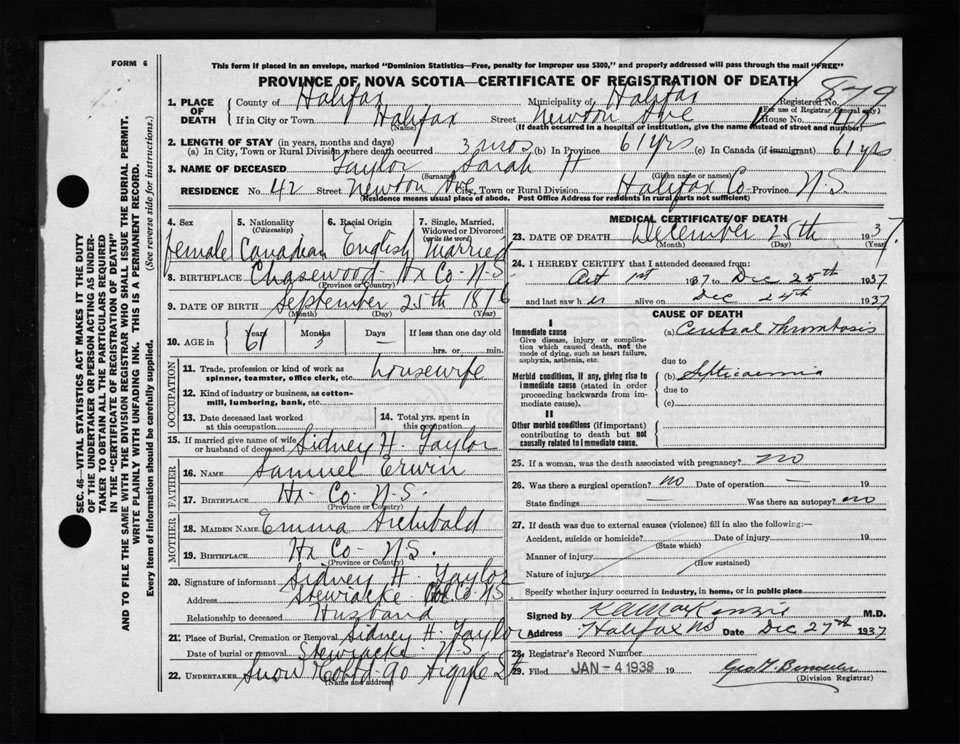 FORM 6
This form if placed in an envelope, marked "Dominion Statistics—Free, penalty for improper use $300," and properly addressed will pass through the mail "FREE"
PROVINCE OF NOVA SCOTIA—CERTIFICATE OF REGISTRATION OF DEATH
879
1. PLACE OF DEATH
County of Halifax Municipality of Halifax Registered No.
(For use of Registrar General only)
If in City or Town Halifax Street Newton Ave House No. 42
(Name) (If death occurred in a hospital or institution, give the name instead of street and number)
2. LENGTH OF STAY (in years, months and days)
(a) In City, Town or Rural Division where death occurred 3 mos (b) In Province 61 yrs (c) In Canada (if immigrant) 61 yrs
3. NAME OF DECEASED Taylor Sarah H
(Surname) (Given name or names)
RESIDENCE No. 42 Street Newton Ave City, Town or Rural Division Halifax Co Province N.S.
(Residence means usual place of abode. Post Office Address for residents in rural parts not sufficient)
4. Sex female
5. Nationality (Citizenship) Canadian
6. Racial Origin English
7. Single, Married, Widowed or Divorced (write the word) Married
8. BIRTHPLACE Chasewood Hx Co N-S
(Province or Country)
9. DATE OF BIRTH September 25th 1876
(Month) (Day) (Year)
10. AGE in Years 61 Months 3 Days — If less than one day old
hrs. or min.
OCCUPATION
11. Trade, profession or kind of work as spinner, teamster, office clerk, etc. housewife
12. Kind of industry or business, as cotton-mill, lumbering, bank, etc.
13. Date deceased last worked at this occupation
14. Total yrs. spent in this occupation
15. If married give name of wife or husband of deceased Sidney H. Taylor
FATHER
16. NAME Samuel Erwin
17. BIRTHPLACE Hx- Co- N-S.
(Province or Country)
MOTHER
18. MAIDEN NAME Emma Archibald
19. BIRTHPLACE Hx Co- N S.
(Province or Country)
20. Signature of informant Sidney H. Taylor
Address Stewiacke Col. Co. NS
Relationship to deceased Husband
21. Place of Burial, Cremation or Removal Sidney H. Taylor
Date of burial or removal Stewiacke N-S.
22. UNDERTAKER Snow & Co Ltd 90 Argyle St
(Name and address)
MEDICAL CERTIFICATE OF DEATH
23. DATE OF DEATH December 25th 1937.
(Month) (Day) (Year)
24. I HEREBY CERTIFY that I attended deceased from:
Oct 1st 1937 to Dec 25th 1937
and last saw her alive on Dec 24th 1937
CAUSE OF DEATH
I
Immediate cause
Give disease, injury or complication which caused death, not the mode of dying, such as heart failure, asphyxia, asthenia, etc.
(a) Cerebral Thrombosis
due to
Morbid conditions, if any, giving rise to immediate cause (stated in order proceeding backwards from immediate cause).
(b) Septicaemia
due to
(c)
II
Other morbid conditions (if important) contributing to death but not causally related to immediate cause.
25. If a woman, was the death associated with pregnancy? no
26. Was there a surgical operation? no Date of operation — 19
State findings — Was there an autopsy? no
27. If death was due to external causes (violence) fill in also the following:—
Accident, suicide or homicide? Date of injury 19
(State which)
Manner of injury
(How sustained)
Nature of injury
Specify whether injury occurred in industry, in home, or in public place
Signed by K A MacKenzie M.D.
Address Halifax NS Date Dec 27th 1937
28. Registrar's Record Number
29. Filed JAN -4 1938 19
(Division Registrar)
SEC. 46—VITAL STATISTICS ACT MAKES IT THE DUTY
OF THE UNDERTAKER OR PERSON ACTING AS UNDER-
TAKER TO OBTAIN ALL THE PARTICULARS REQUIRED
IN THE "CERTIFICATE OF REGISTRATION OF DEATH"
AND TO FILE THE SAME WITH THE DIVISION REGISTRAR WHO SHALL ISSUE THE BURIAL PERMIT.
WRITE PLAINLY WITH UNFADING INK. THIS IS A PERMANENT RECORD.
Every item of information should be carefully supplied. (See reverse side for instructions.)